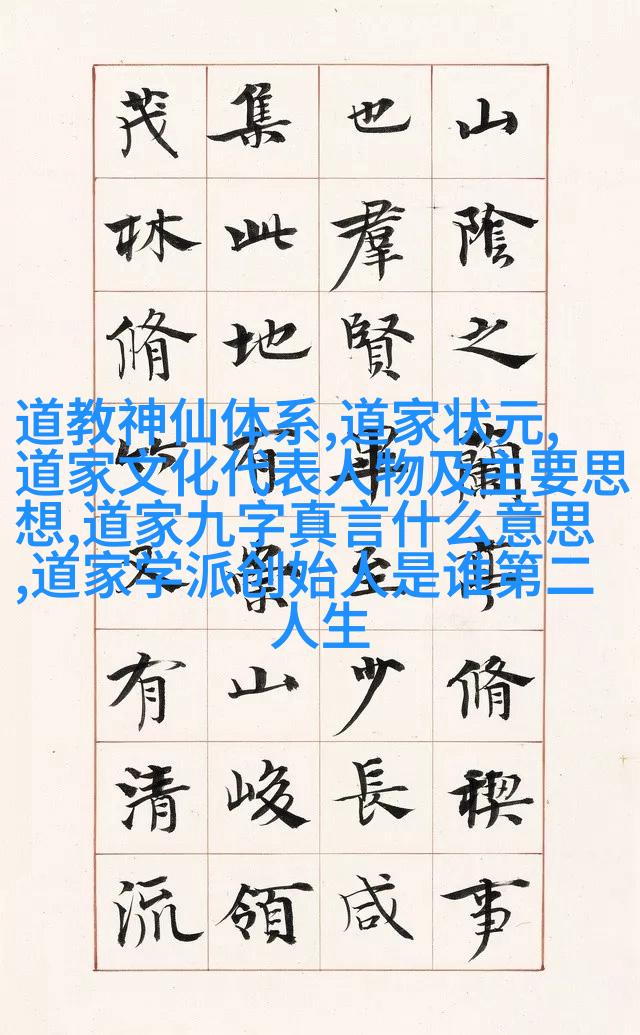 山陰之蘭亭脩稧事
也羣賢畢至少長咸
集此地有崇山峻領
茂林脩竹又有清流
道教神仙体系,道家状元,
道家文化代表人物及主要思
想,道家九字真言什么意思
,道家学派创始人是谁第二
人生